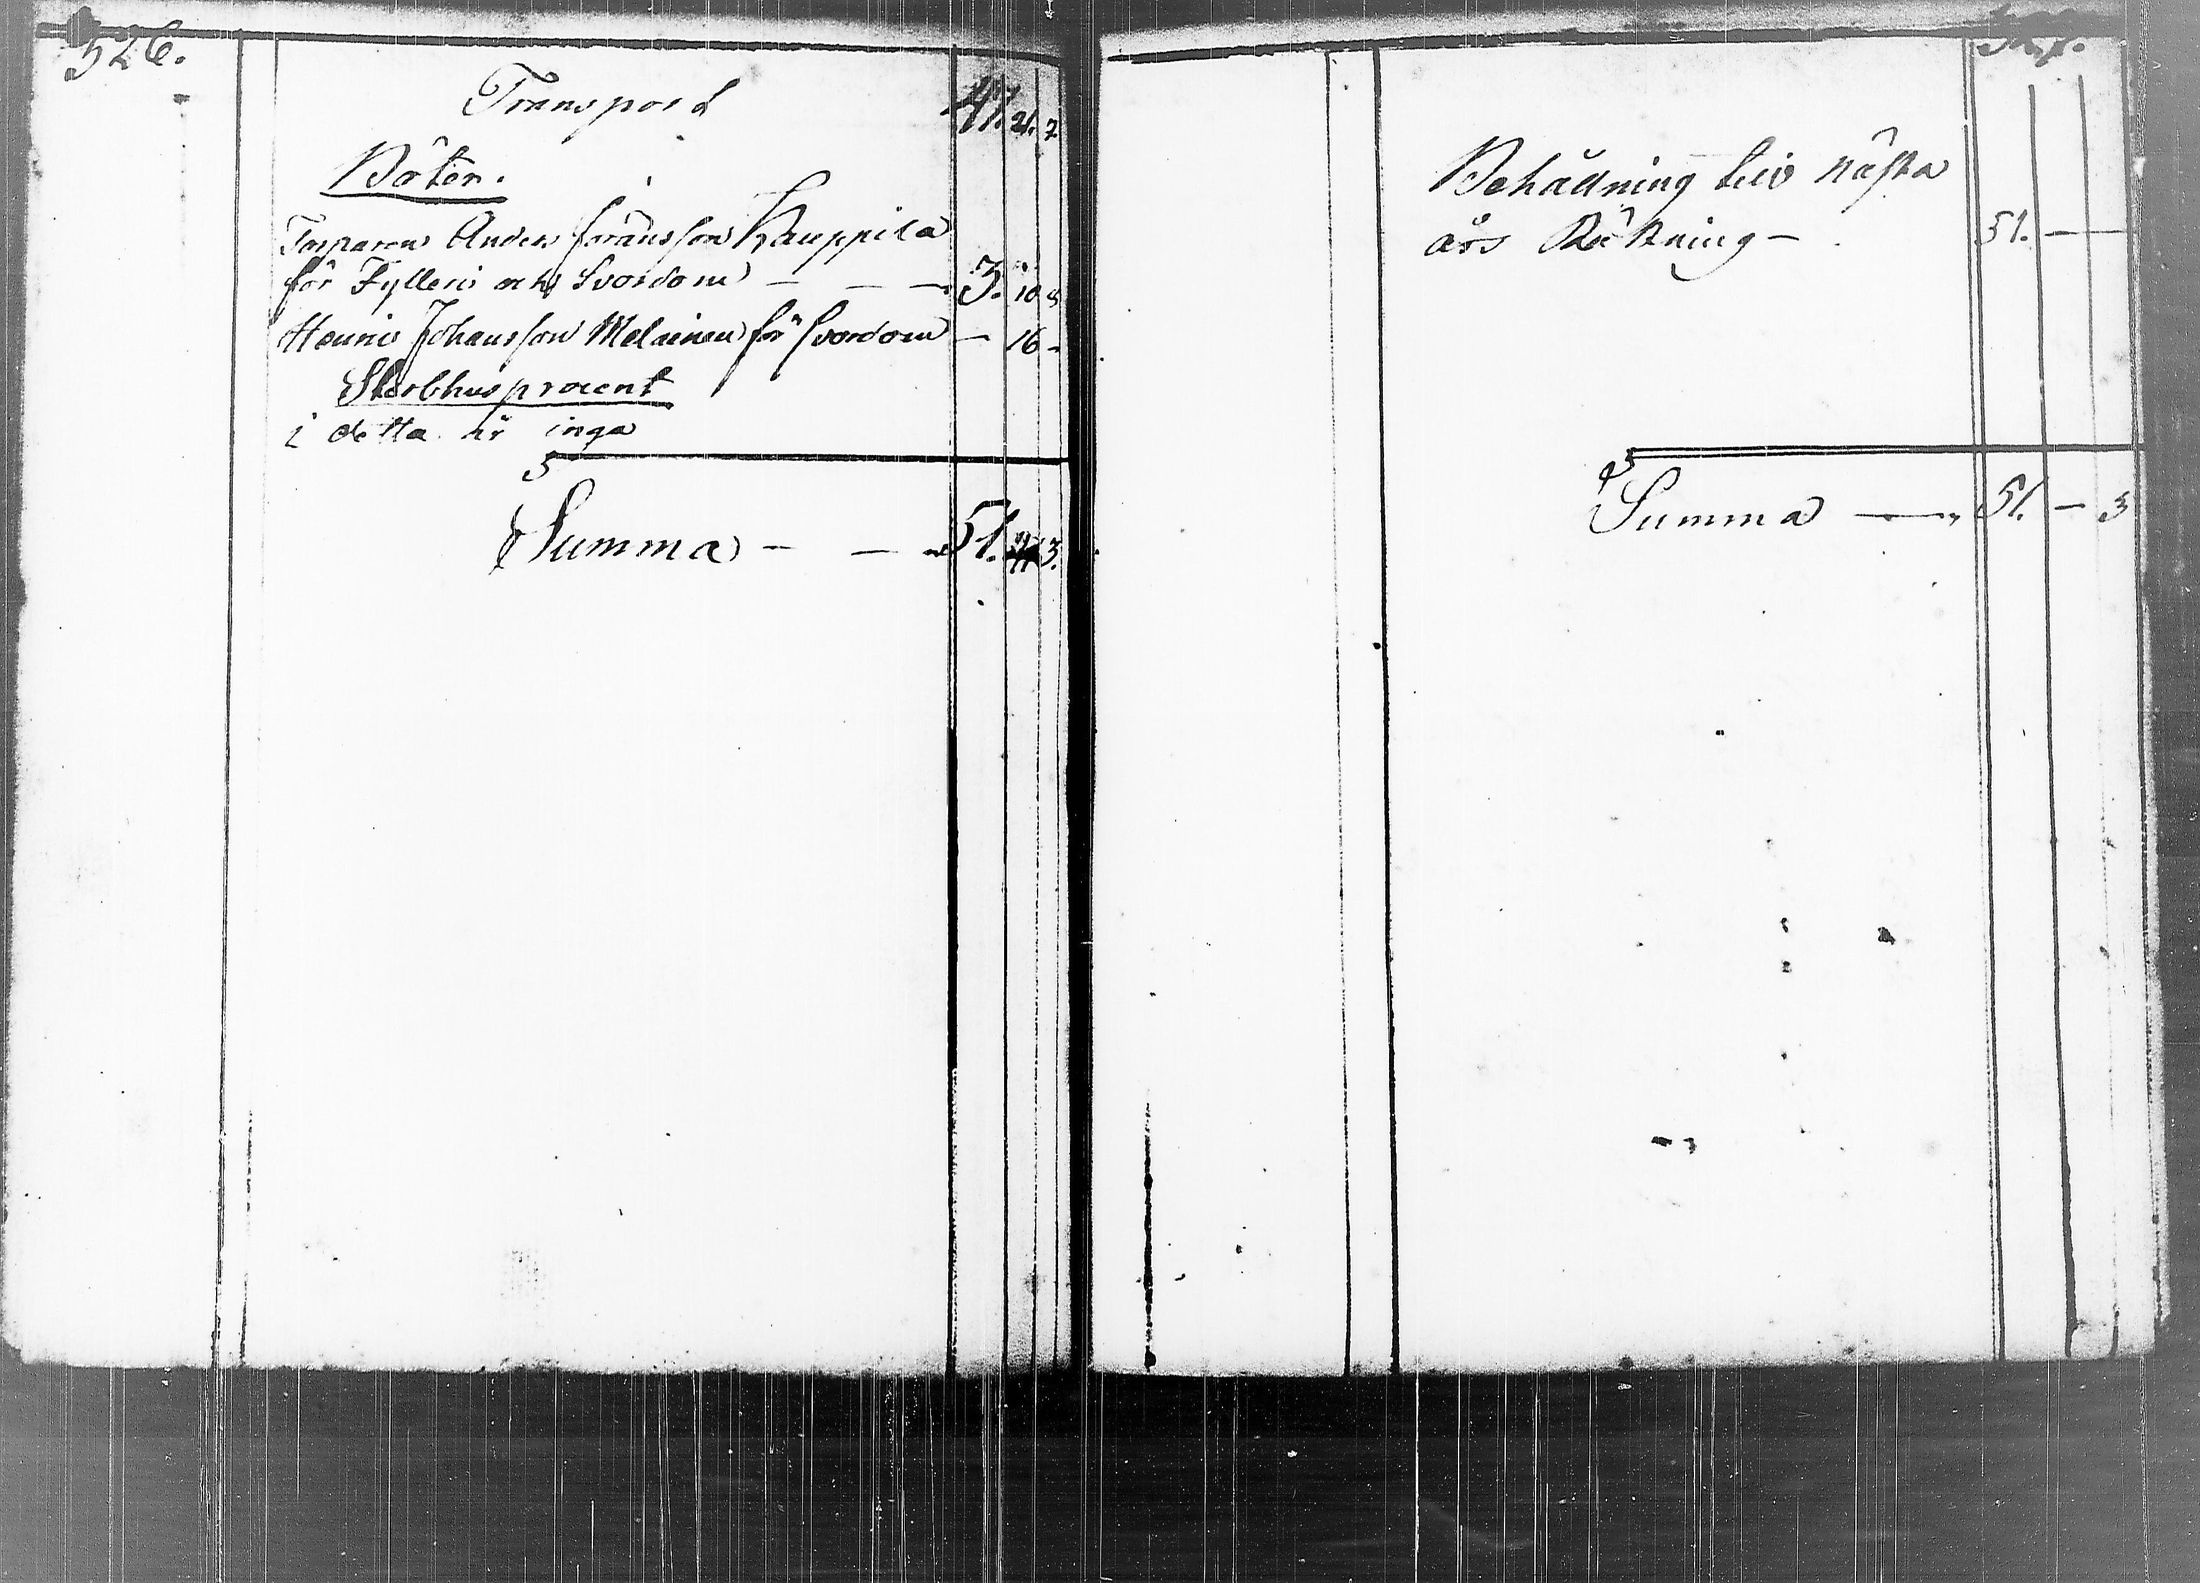 526.
Transport 47. 21. 7
Böter.
Torparen Anders Göransson Kauppila
för Fylleri och Svordom — — — 3. 10 8
Henric Johansson Melainen för Svordom — 16 -
Sterbhus procent
i detta år inga
Summa — — 51. 3.
527.
Behållning till nästa
års Räkning — 51. — —
Summa — 51. — 3